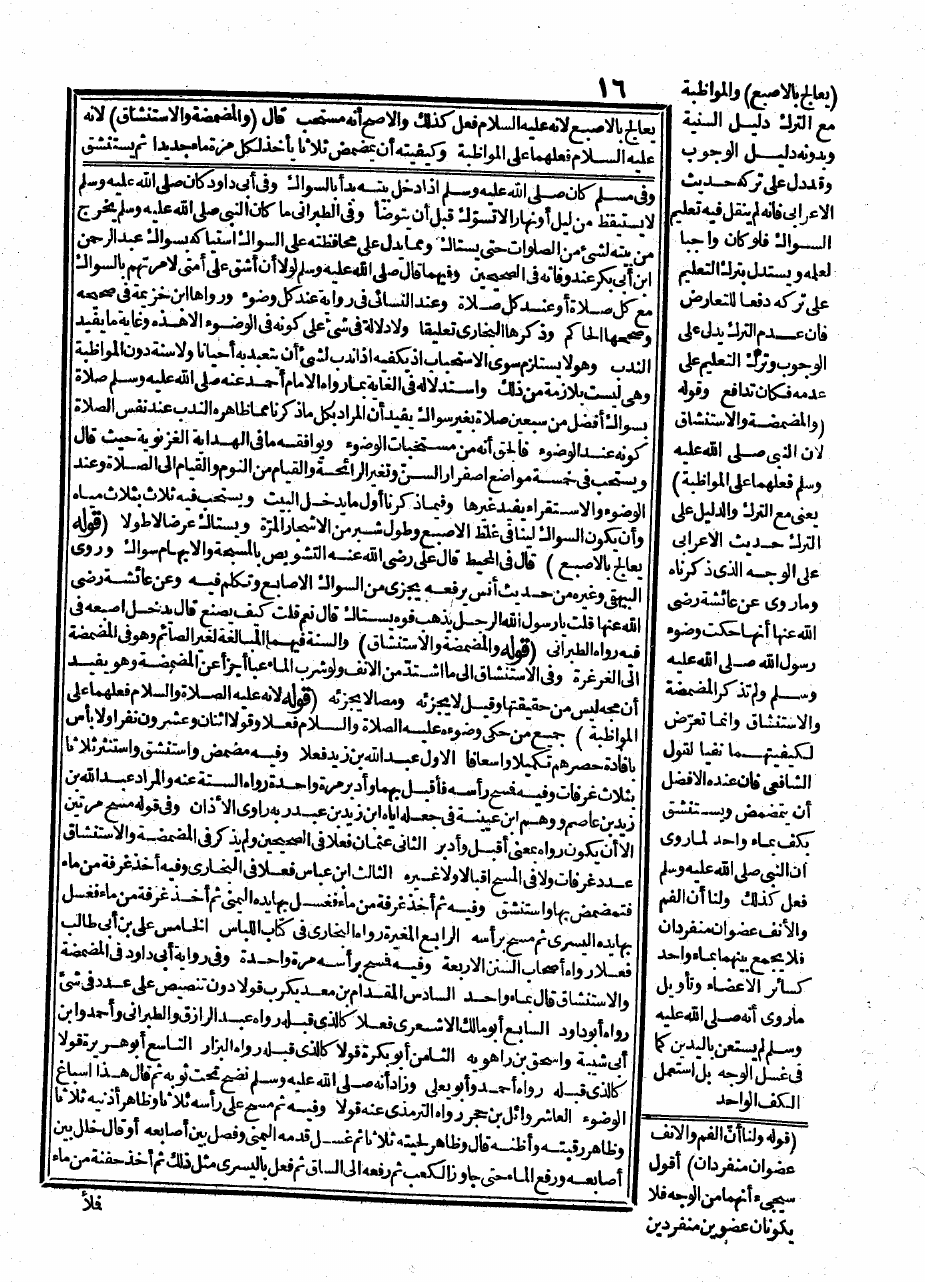 ١٦
يعالج بالاصبع لانه عليه السلام فعل كذلك والاصح أنه مستحب قال (والمضمضة والاستنشاق) لانه
عليه السلام فعلهما على المواظبة وكيفيته أن يمضمض ثلاثا يأخذ لكل مرة ماء جديدا ثم يستنشق
وفى مسلم كان صلى الله عليه وسلم اذا دخل بيته بدأ بالسواك وفى أبى داود كان صلى الله عليه وسلم
لا يستيقظ من ليل أو نهار الا تسوك قبل أن يتوضأ وفى الطبرانى ما كان النبى صلى الله عليه وسلم يخرج
من بيته لشئ من الصلوات حتى يستاك ومما يدل على محافظته على السواك استياكه بسواك عبد الرحمن
ابن أبى بكر عند وفاته فى الصحيحين وفيهما قال صلى الله عليه وسلم لولا أن أشق على أمتى لامرتهم بالسواك
مع كل صلاة أو عند كل صلاة وعند النسائى فى رواية عند كل وضوء ورواها ابن خزيمة فى صحيحه
وصححها الحاكم وذكرها البخارى تعليقا ولا دلالة فى شئ على كونه فى الوضوء الا هذه وغاية ما يفيد
الندب وهو لا يستلزم سوى الاستحباب اذ يكفيه اذا ندب لشئ أن يتعبد به أحيانا ولا سنة دون المواظبة
وهى ليست بلازمة من ذلك واستدلاله فى الغاية بما رواه الامام أحمد عنه صلى الله عليه وسلم صلاة
بسواك أفضل من سبعين صلاة بغير سواك يفيد أن المراد بكل ما ذكرنا مما ظاهره الندب عند نفس الصلاة
كونه عند الوضوء فالحق أنه من مستحبات الوضوء ويوافقه ما فى الهداية الغزنوية حيث قال
ويستحب فى خمسة مواضع اصفرار السن وتغير الرائحة والقيام من النوم والقيام الى الصلاة وعند
الوضوء والاستقراء يفيد غيرها وفيما ذكرنا أول ما يدخل البيت ويستحب فيه ثلاث بثلاث مياه
وأن يكون السواك لينا فى غلظ الاصبع وطول شبر من الاشجار المرة ويستاك عرضا لا طولا (قوله
يعالج بالاصبع) قال فى المحيط قال على رضى الله عنه التشويص بالمسبحة والابهام سواك وروى
البيهقى وغيره من حديث أنس يرفعه يجزى من السواك الاصابع وتكلم فيه وعن عائشة رضى
الله عنها قلت يا رسول الله الرجل يذهب فوه يستاك قال نعم قلت كيف يصنع قال يدخل اصبعه فى
فيه رواه الطبرانى (قوله والمضمضة والاستنشاق) والسنة فيهما المبالغة لغير الصائم وهو فى المضمضة
الى الغرغرة وفى الاستنشاق الى ما اشتد من الانف ولو شرب الماء عبا أجزأ عن المضمضة وهو يفيد
أن مجه ليس من حقيقتها وقيل لا يجزئه ومصا لا يجزئه (قوله لانه عليه الصلاة والسلام فعلهما على
المواظبة) جميع من حكى وضوءه عليه الصلاة والسلام فعلا وقولا اثنان وعشرون نفرا ولا بأس
بافادة حصرهم تكميلا واسعافا الاول عبد الله بن زيد فعلا وفيه مضمض واستنشق واستنثر ثلاثا
بثلاث غرفات وفيه فمسح رأسه فأقبل بهما وأدبر مرة واحدة رواه الستة عنه والمراد عبد الله بن
زيد بن عاصم ووهم ابن عيينة فى جعله اياه ابن زيد بن عبد ربه راوى الأذان وفى قوله مسح مرتين
الا أن يكون رواه بمعنى أقبل وأدبر الثانى عثمان فعلا فى الصحيحين ولم يذكر فى المضمضة والاستنشاق
عدد غرفات ولا فى المسح اقبالا ولا غيره الثالث ابن عباس فعلا فى البخارى وفيه أخذ غرفة من ماء
فتمضمض بها واستنشق وفيه ثم أخذ غرفة من ماء فغسل بها يده اليمنى ثم أخذ غرفة من ماء فغسل
بها يده اليسرى ثم مسح برأسه الرابع المغيرة رواه البخارى فى كتاب اللباس الخامس على بن أبى طالب
فعلا رواه أصحاب السنن الاربعة وفيه فمسح برأسه مرة واحدة وفى رواية أبى داود فى المضمضة
والاستنشاق قال بماء واحد السادس المقدام بن معديكرب قولا دون تنصيص على عدد فى شئ
رواه أبو داود السابع أبو مالك الاشعرى فعلا كالذى قبله رواه عبد الرازق والطبرانى وأحمد وابن
أبى شيبة واسحق بن راهويه الثامن أبو بكرة قولا كالذى قبله رواه البزار التاسع أبو هريرة قولا
كالذى قبله رواه أحمد وأبو يعلى وزاد أنه صلى الله عليه وسلم نضح تحت ثوبه ثم قال هذا اسباغ
الوضوء العاشر وائل بن حجر رواه الترمذى عنه قولا وفيه ثم مسح على رأسه ثلاثا وظاهر أذنيه ثلاثا
وظاهر رقبته وأظنه قال وظاهر لحيته ثلاثا ثم غسل قدمه اليمنى وفصل بين أصابعه أو قال خلل بين
أصابعه ورفع الماء حتى جاوز الكعب ثم رفعه الى الساق ثم فعل باليسرى مثل ذلك ثم أخذ حفنة من ماء
فلأ
(يعالج بالاصبع) والمواظبة
مع الترك دليل السنية
وبدونه دليل الوجوب
وقد دل على تركه حديث
الاعرابى فانه لم ينقل فيه تعليم
السواك فلو كان واجبا
لعلمه ويستدل بترك التعليم
على تركه دفعا للتعارض
فان عدم الترك يدل على
الوجوب وترك التعليم على
عدمه فكان تدافع وقوله
(والمضمضة والاستنشاق
لان النبى صلى الله عليه
وسلم فعلهما على المواظبة)
يعنى مع الترك والدليل على
الترك حديث الاعرابى
على الوجه الذى ذكرناه
وما روى عن عائشة رضى
الله عنها أنها حكت وضوء
رسول الله صلى الله عليه
وسلم ولم تذكر المضمضة
والاستنشاق وانما تعرض
لكيفيتهما نفيا لقول
الشافعى فان عنده الافضل
أن يتمضمض ويستنشق
بكف بماء واحد لما روى
أن النبى صلى الله عليه وسلم
فعل كذلك ولنا أن الفم
والأنف عضوان منفردان
فلا يجمع بينهما بماء واحد
كسائر الاعضاء وتأويل
ما روى أنه صلى الله عليه
وسلم لم يستعن باليدين كما
فى غسل الوجه بل استعمل
الكف الواحد
(قوله ولنا أن الفم والانف
عضوان منفردان) أقول
سيجىء أنهما من الوجه فلا
يكونان عضوين منفردين